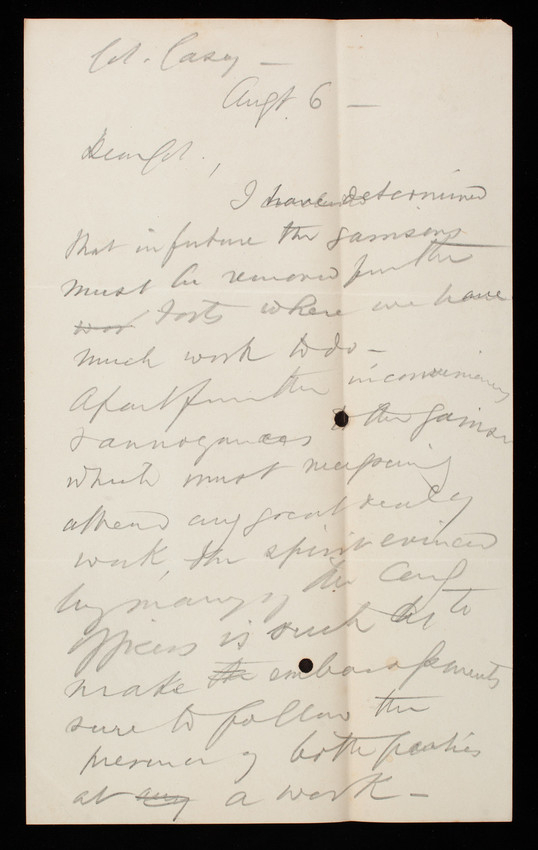 Col. Casey —
Augt. 6 —
Dear Col.,
I have determined
that in future the garrisons
must be removed from the
war forts where we have
much work to do —
Apart from the inconveniences
& annoyances to the garrison
which must
attend any great deal of
work, the spirit evinced
by many of the
officers is such as to
make the embarrassments
sure to follow the
presence of both parties
at any a work —